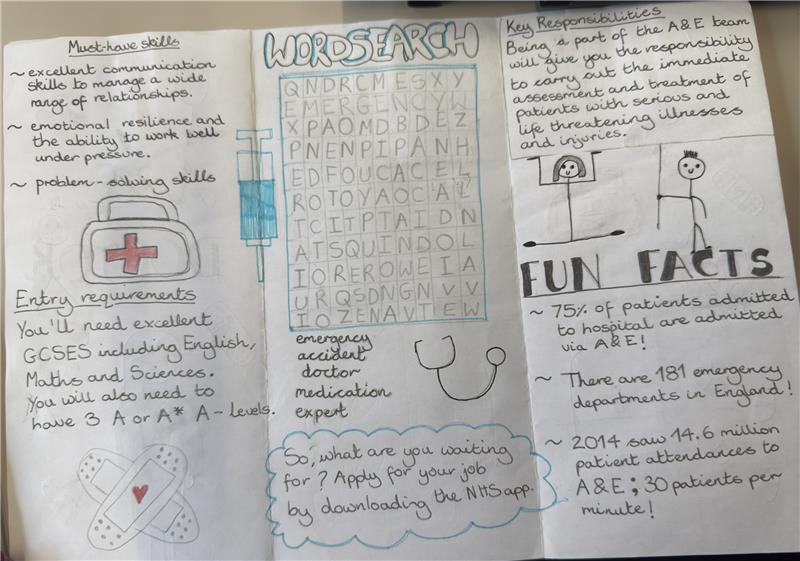 Must-have skills
~ excellent communication
skills to manage a wide
range of relationships.
~ emotional resilience and
the ability to work well
under pressure.
~ problem-solving skills
Entry requirements
You'll need excellent
GCSES including English,
Maths and Sciences.
You will also need to
have 3 A or A* A-Levels.
WORDSEARCH
QNDRCMESXY
EMERGENCYW
XPAOMDBDEZ
PNENPIPANH
EDFOUCACEL
ROTOYAOCAL
TCITPTAIDN
ATSQUINDOL
IOREROWEIA
URQSDNGNVV
IOZENAVTEW
emergency
accident
doctor
medication
expert
So, what are you waiting
for? Apply for your job
by downloading the NHS app.
Key Responsibilities
Being a part of the A&E team
will give you the responsibility
to carry out the immediate
assessment and treatment of
patients with serious and
life threatening illnesses
and injuries.
FUN FACTS
~ 75% of patients admitted
to hospital are admitted
via A&E!
~ There are 181 emergency
departments in England!
~ 2014 saw 14.6 million
patient attendances to
A&E; 30 patients per
minute!